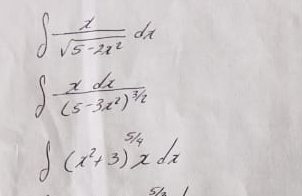 ∫ x / √(5-2x²) dx
∫ x dx / (5-3x²)^(3/2)
∫ (x²+3)^(5/4) x dx